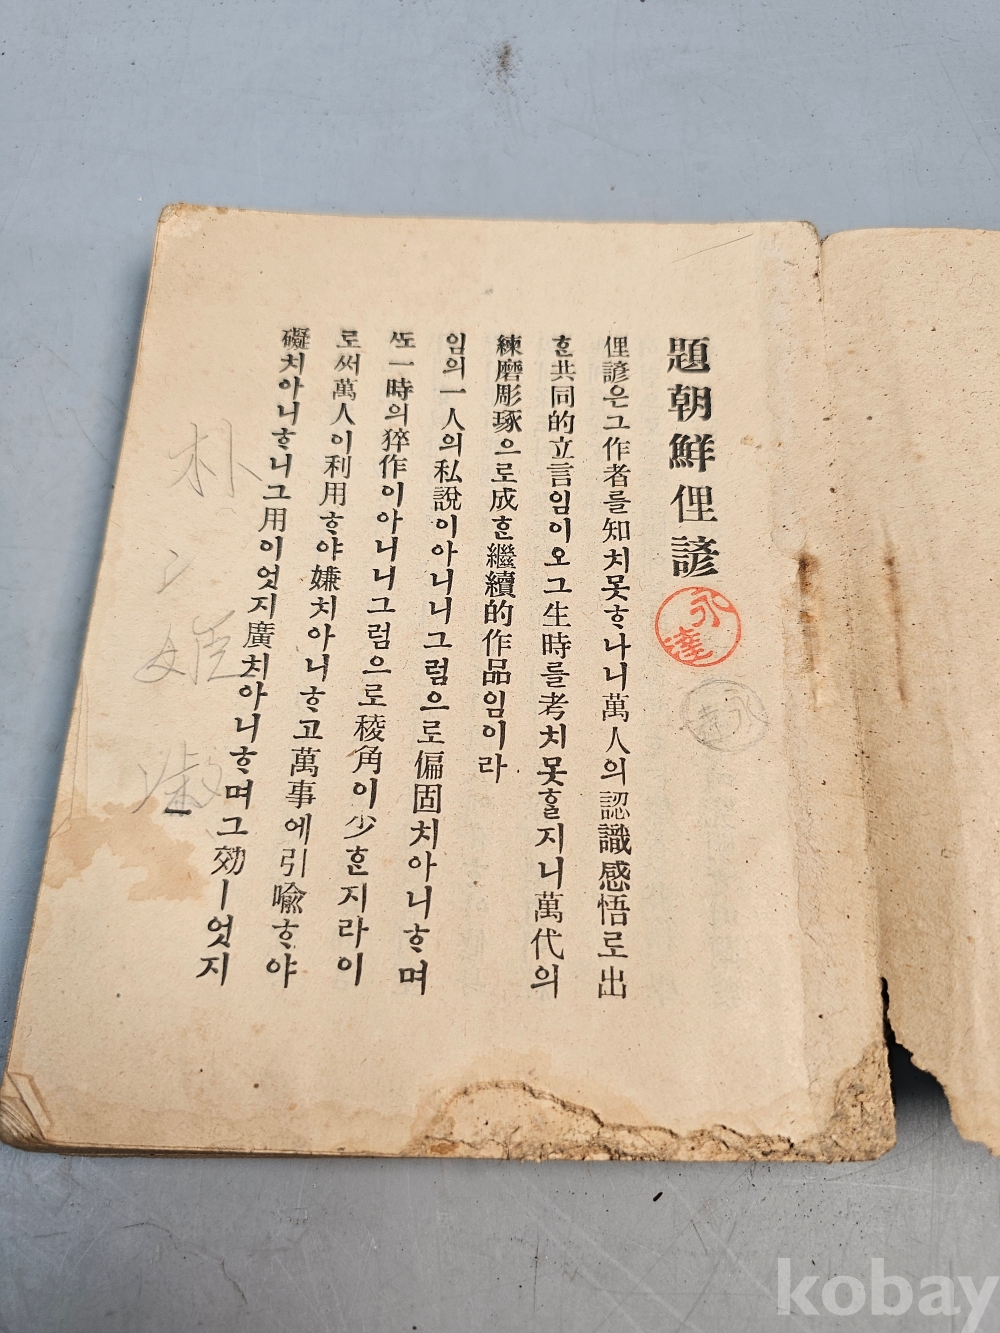 題朝鮮俚諺
俚諺은그作者를知치못ᄒᆞ나니萬人의認識感悟로出
ᄒᆞᆫ共同的立言임이오그生時를考치못ᄒᆞᆯ지니萬代의
練磨彫琢으로成ᄒᆞᆫ繼續的作品임이라
임의一人의私說이아니니그럼으로偏固치아니ᄒᆞ며
ᄯᅩ一時의猝作이아니니그럼으로稜角이少ᄒᆞᆫ지라이
로써萬人이利用ᄒᆞ야嫌치아니ᄒᆞ고萬事에引喩ᄒᆞ야
礙치아니ᄒᆞ니그用이엇지廣치아니ᄒᆞ며그効ㅣ엇지
永達
朴
淑
kobay